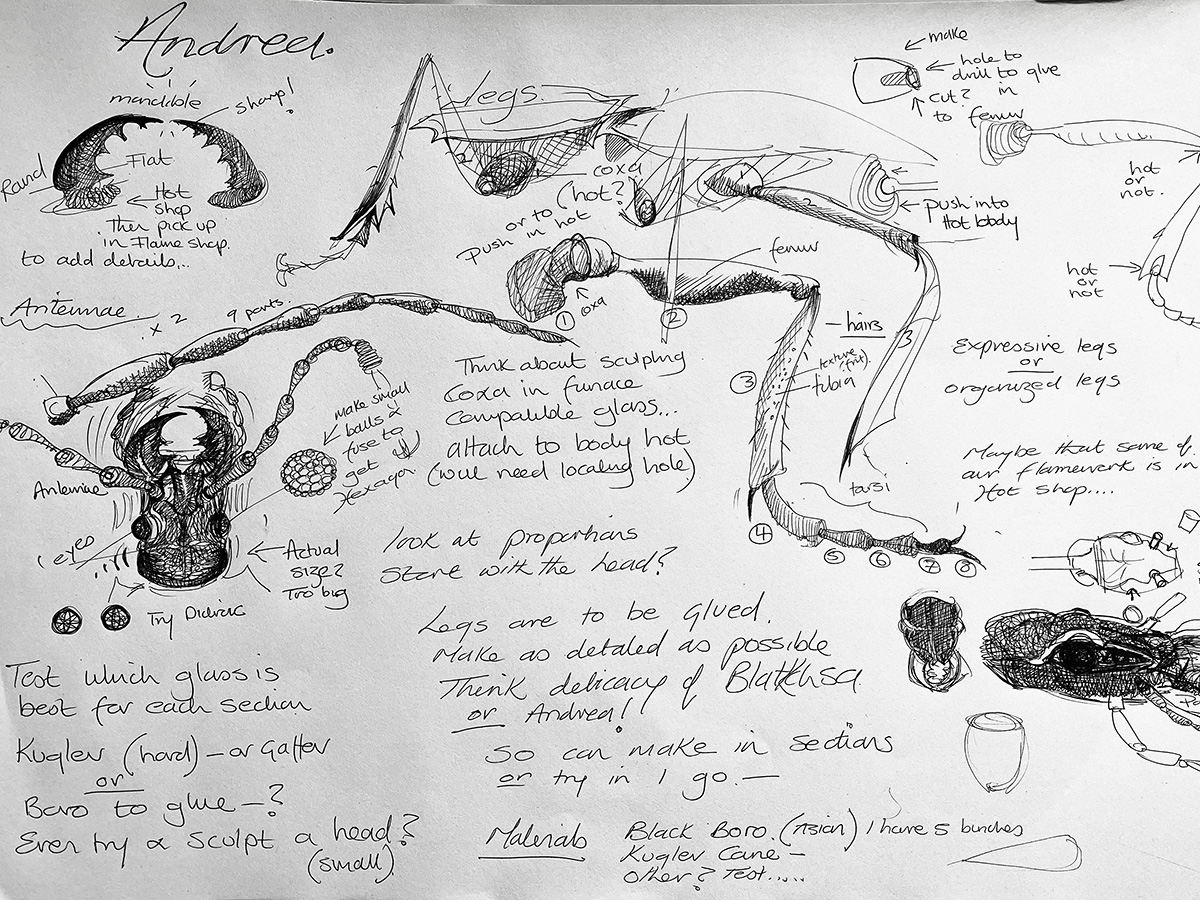 Andrea.
mandible
sharp!
Round
Flat
Hot
Shop
Then pick up
in Flame shop.
to add details...
legs.
2
coxa
(hot?
or to
push in hot
make
hole to
drill to glue
in
cut?
to femur
1
2
3
push into
Hot body
hot
or
not.
hot
or
not
Antennae.
x 2
9 parts.
femur
coxa
1
2
3
hairs
texture
tibia
tarsi
4
5
6
7
8
Expressive legs
or
organized legs
Maybe that some of
our flamework is in
Hot shop....
Think about sculping
Coxa in furnace
compatible glass...
attach to body hot
(will need locating hole)
make small
balls &
fuse to
get
Hexagon
Antennae
eyes
Actual
size?
Too big
Try Dichroic
look at proportions
Start with the head?
Legs are to be glued.
Make as detailed as possible
Think delicacy of Blatkhsa
or Andrea!
So can make in sections
or try in 1 go. —
Test which glass is
best for each section
Kugler (hard) – or Gaffer
or
Boro to glue – ?
Even try & sculpt a head?
(small)
Materials
Black Boro. (Asian) I have 5 bunches
Kugler Cane –
other? Test.....